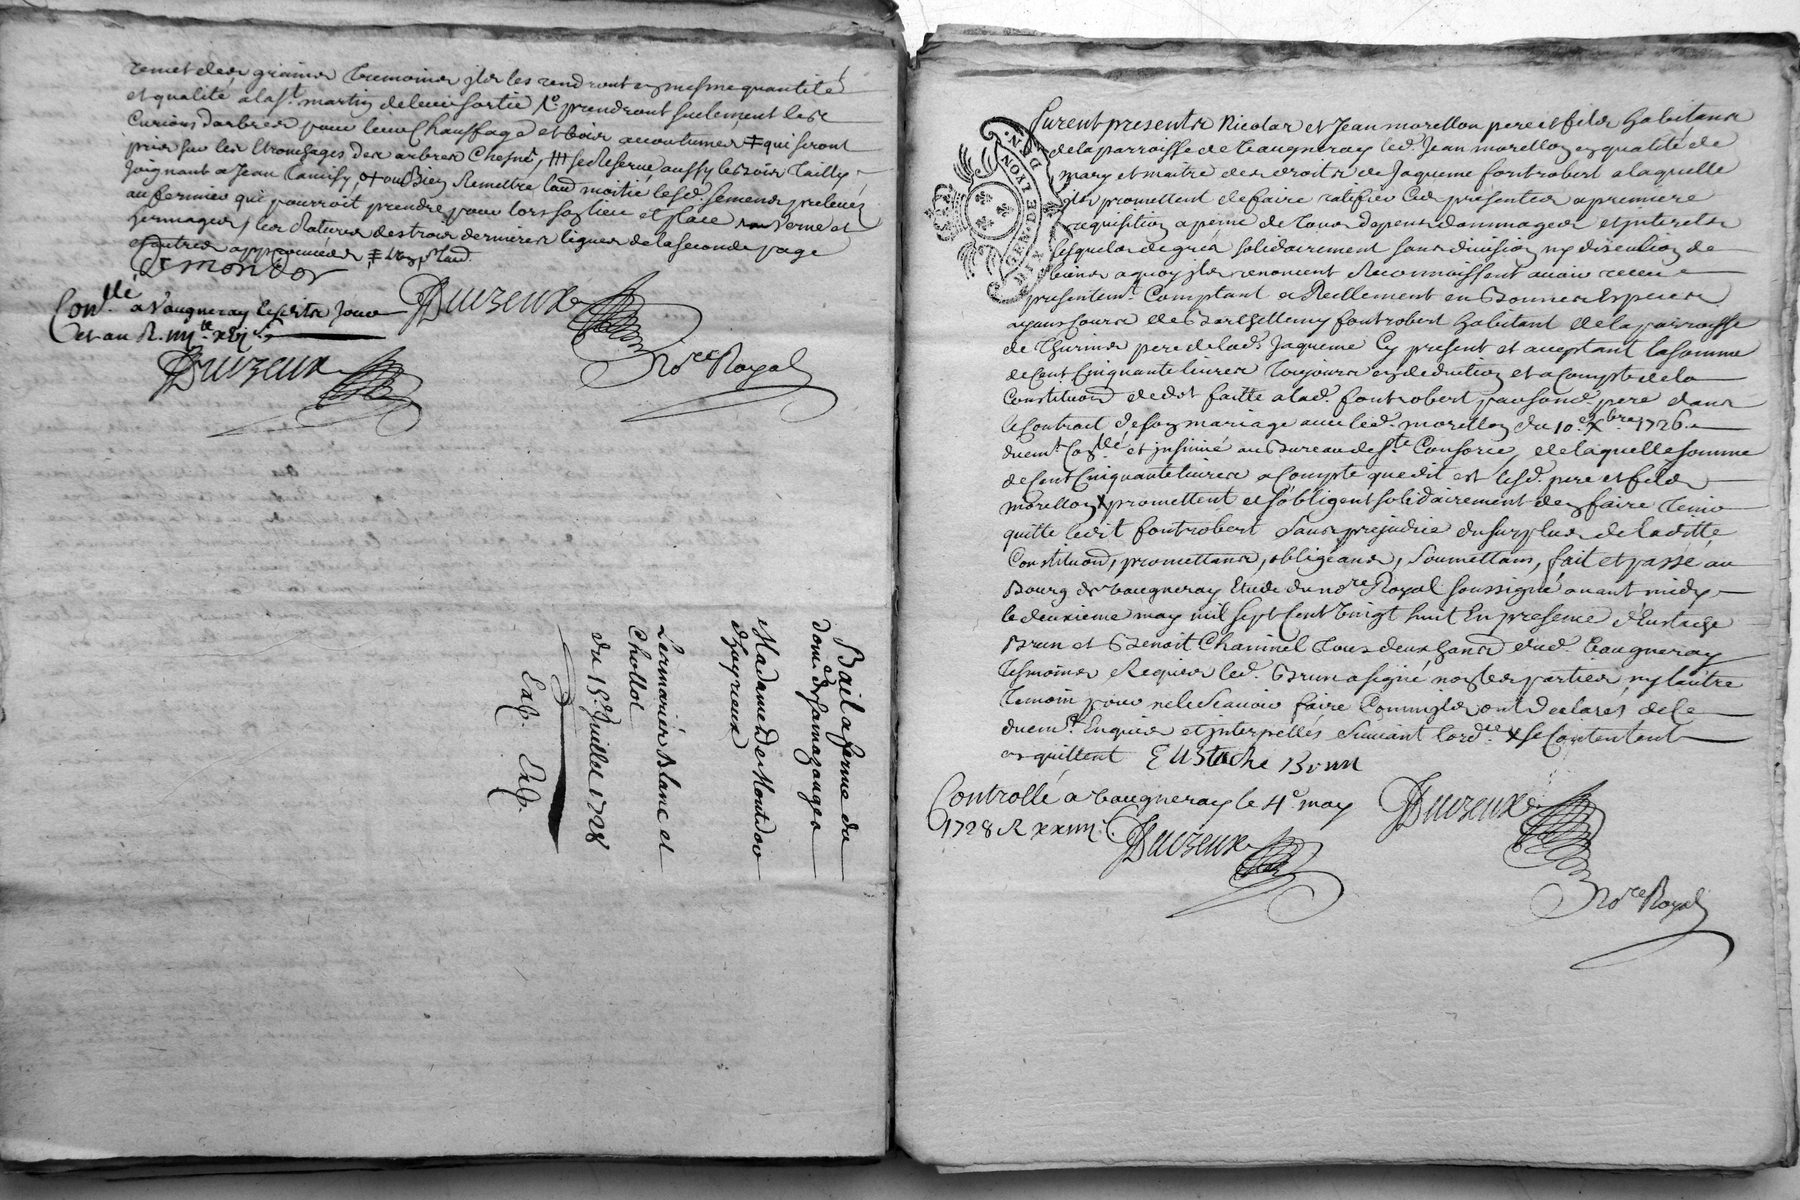 remet des grains tremoines ils les rendront en mesme quantité
et qualité a la st. martin de leur sortie prendront seulement les
curions d'arbres pour leur chauffage et bois accoutumés qui seront
pris sur les Etronchages des arbres Chesnes, se Reserve aussy le bois Tailly
joignant a Jean ou Bien Remettre lad. moitié lesd. semences prelevées
au fermier qui pourroit prendre pour lors son lieu et place verne et
hermages, les Ratures des trois dernieres lignes de la seconde page
et autres approuvées
De mondor
Conllé a Vaugneray lesdits Jour
et an R.
Duizeux
Duizeux
Nore Royal
Bail a ferme du
dome de hamazanges
Madame de Montdor
d'hoyrieux
Lermarier Blanc et
Chollot
du 15e Juillet 1728
Exp. Exp.
GEN. DE LYON
DIX DEN.
Furent presents Nicolas et Jean morellon pere et fils habitans
de la parroisse de Vaugneray led. Jean morellon en qualité de
mary et maitre des droits de Jaqueme fontrobert a laquelle
ils promettent de faire ratifier Ces presentes a premiere
requisition a peine de tous depens dommages et interets
lesquels de gré solidairement sans division ny discution de
biens a quoy ils renoncent Reconnoissent avoir receu
presentemt. Comptant et Reellement en Bonnes Especes
ayans cours de Barthellemy fontrobert habitant de la parroisse
de Thurins pere de lad. Jaqueme Cy present et acceptant la somme
de Cent Cinquante livres Toujours en deduction et a compte de la
Constituon de dot faitte a lad. fontrobert par sond. pere dans
le Contrat de son mariage avec led. morellon du 10e Xbre 1726
duemt. Conllé et insinué au Bureau de Ste Consorce, de laquelle somme
de Cent Cinquante livres a Compte que dit est lesd. pere et fils
morellon X promettent et s'obligent solidairement d'en faire Tenir
quitte ledit fontrobert Sans prejudice du surplus de laditte
Constituon, promettans, obligeans, Soumettans, fait et passé au
Bourg de Vaugneray Etude du nore Royal soussigné avant midy
le deuxieme may mil sept Cent Vingt huit En presence d'Eustache
Brun et Benoit Chaninel Tous deux dud. Vaugneray
Tesmoins Requis led. Brun a signé non les parties, ny l'autre
Temoin pour ne le Scavoir faire Comm'ils ont declarés de ce
duemt. Enquis et interpellés Suivant l'ordce X se Contentent
et quittent Eustache Brun
Controllé a Vaugneray le 4e may
1728 R xxiiii s.
Duizeux
Duizeux
Nore Royal